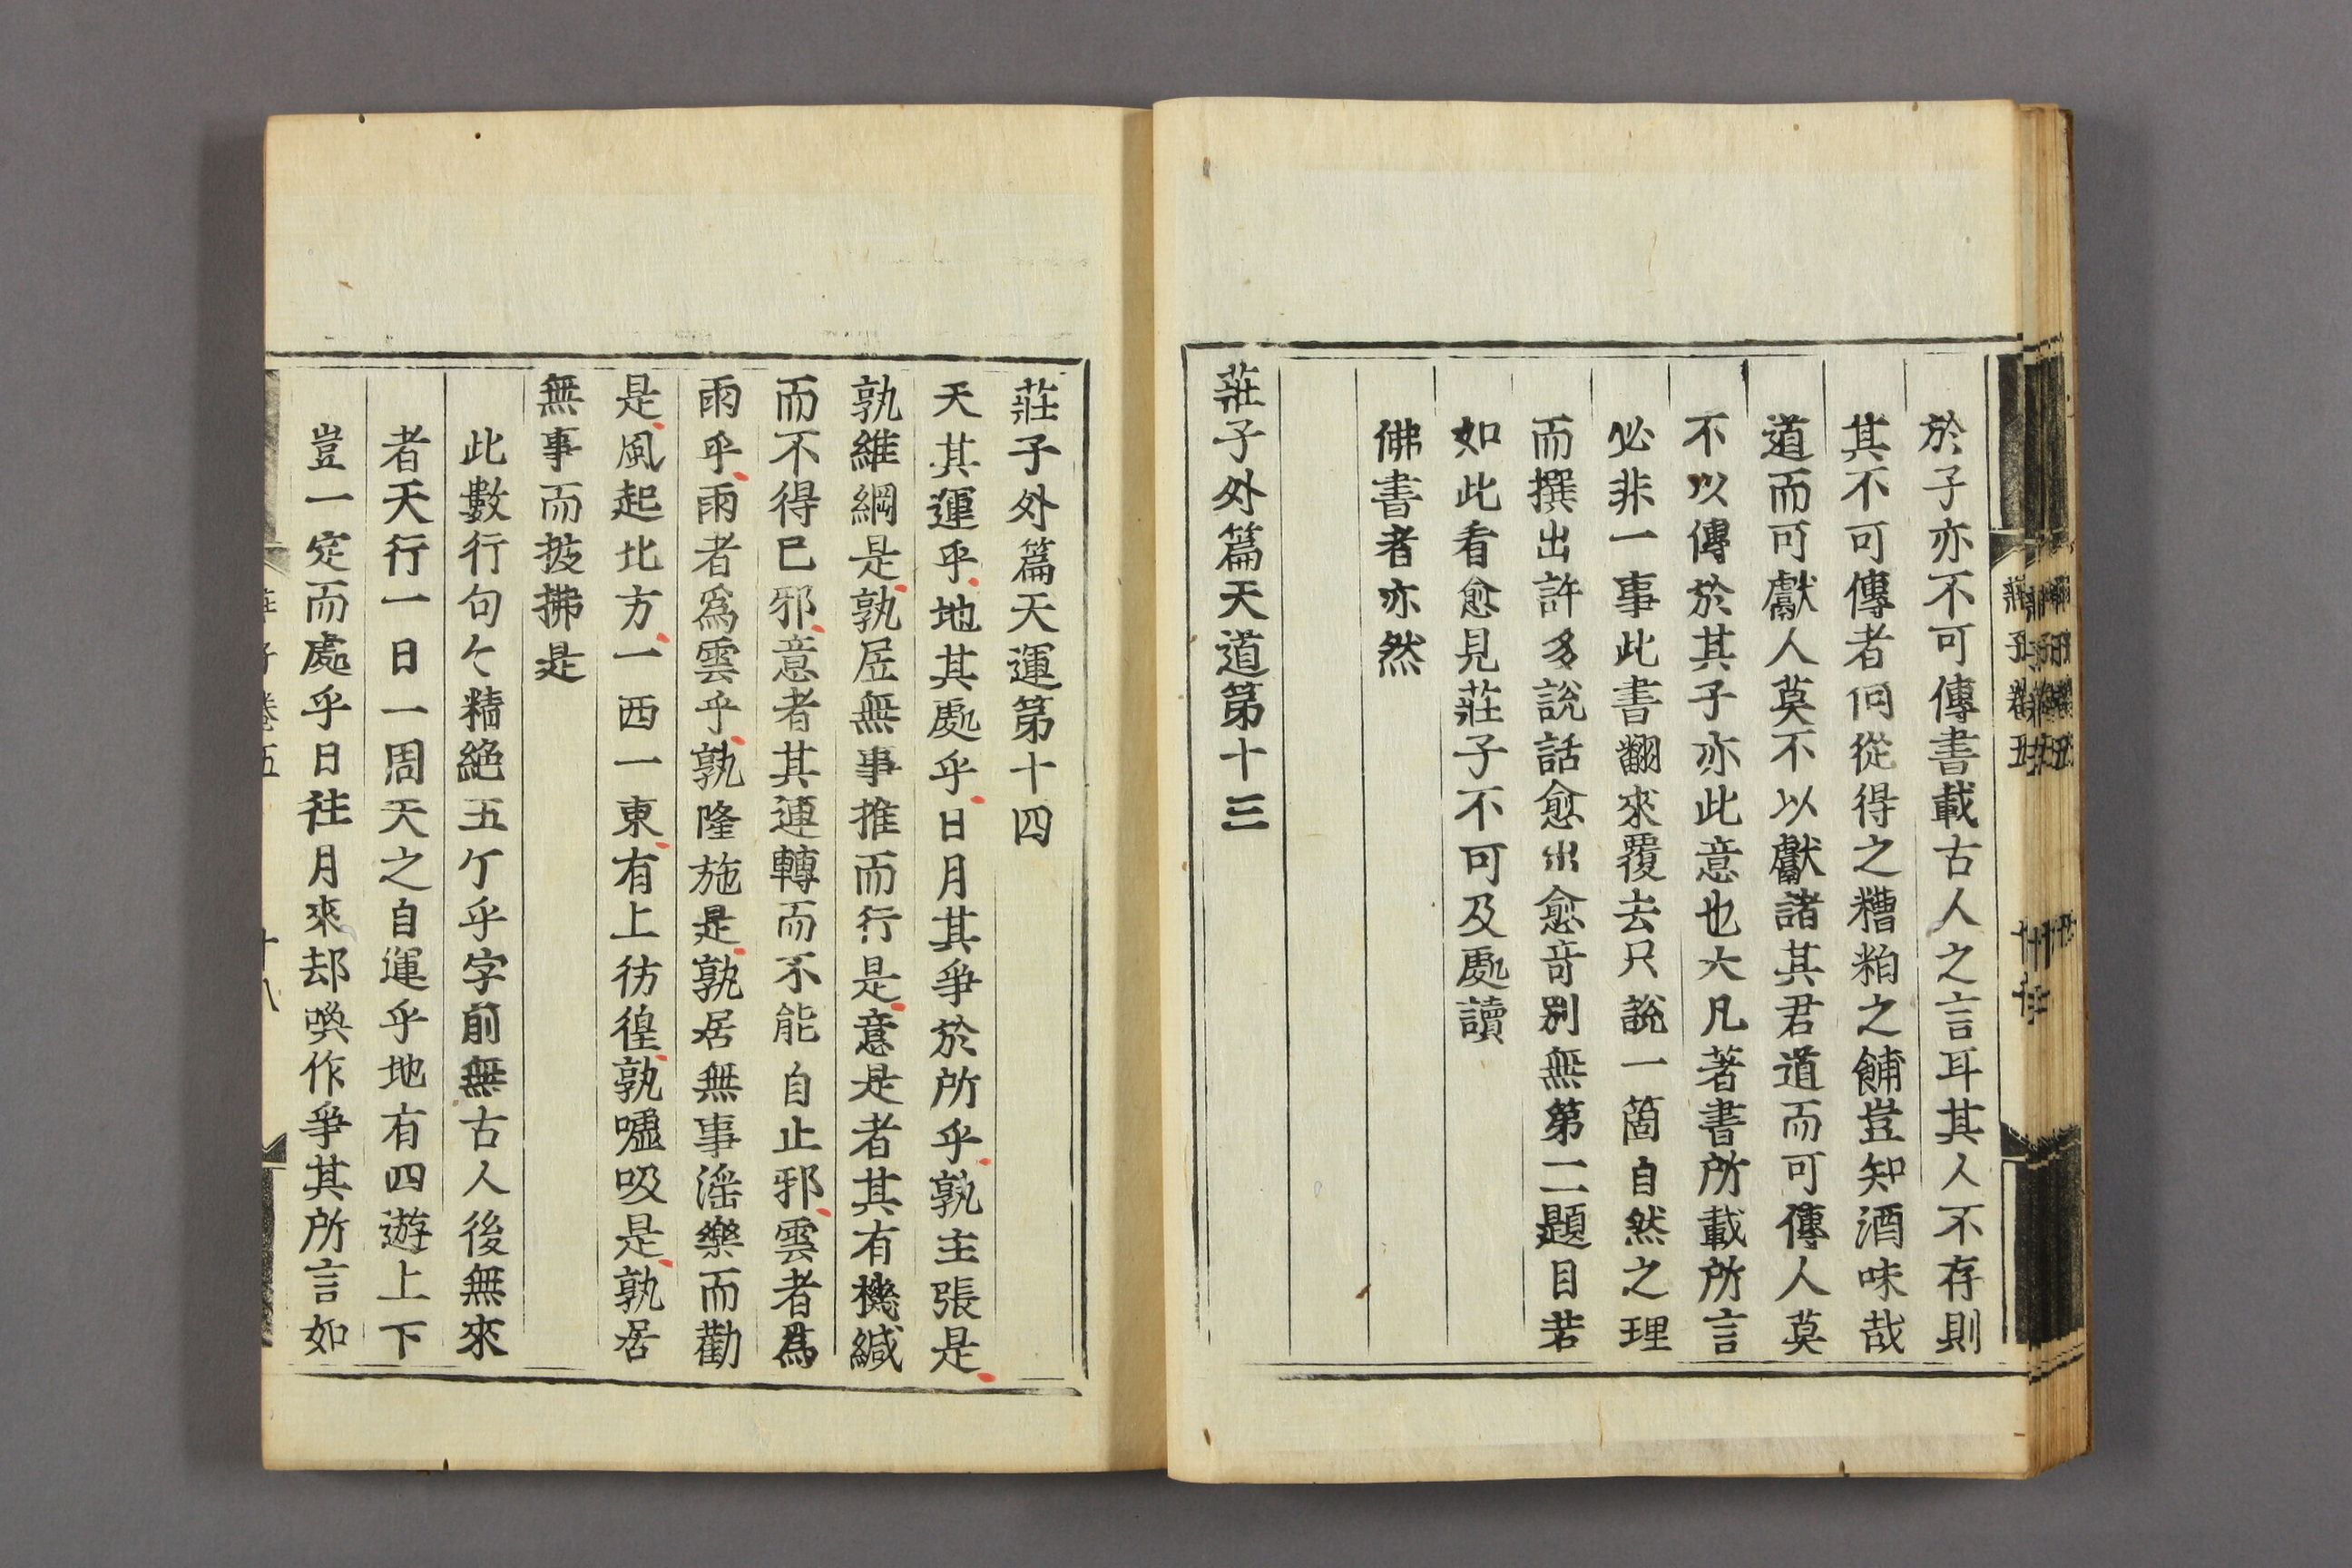 於子亦不可傳書載古人之言耳其人不存則
其不可傳者何從得之糟粕之餔豈知酒味哉
道而可獻人莫不以獻諸其君道而可傳人莫
不以傳於其子亦此意也大凡著書所載所言
必非一事此書翻來覆去只說一箇自然之理
而撰出許多說話愈出愈竒別無第二題目若
如此看愈見莊子不可及處讀
佛書者亦然
莊子外篇天道第十三
莊子外篇天運第十四
天其運乎地其處乎日月其爭於所乎孰主張是
孰維綱是孰居無事推而行是意是者其有機緘
而不得已邪意者其運轉而不能自止邪雲者爲
雨乎雨者爲雲乎孰隆施是孰居無事滛樂而勸
是風起北方一西一東有上彷徨孰噓吸是孰居
無事而披拂是
此數行句々精絶五个乎字前無古人後無來
者天行一日一周天之自運乎地有四遊上下
豈一定而處乎日往月來却喚作爭其所言如
莊子卷五 十八